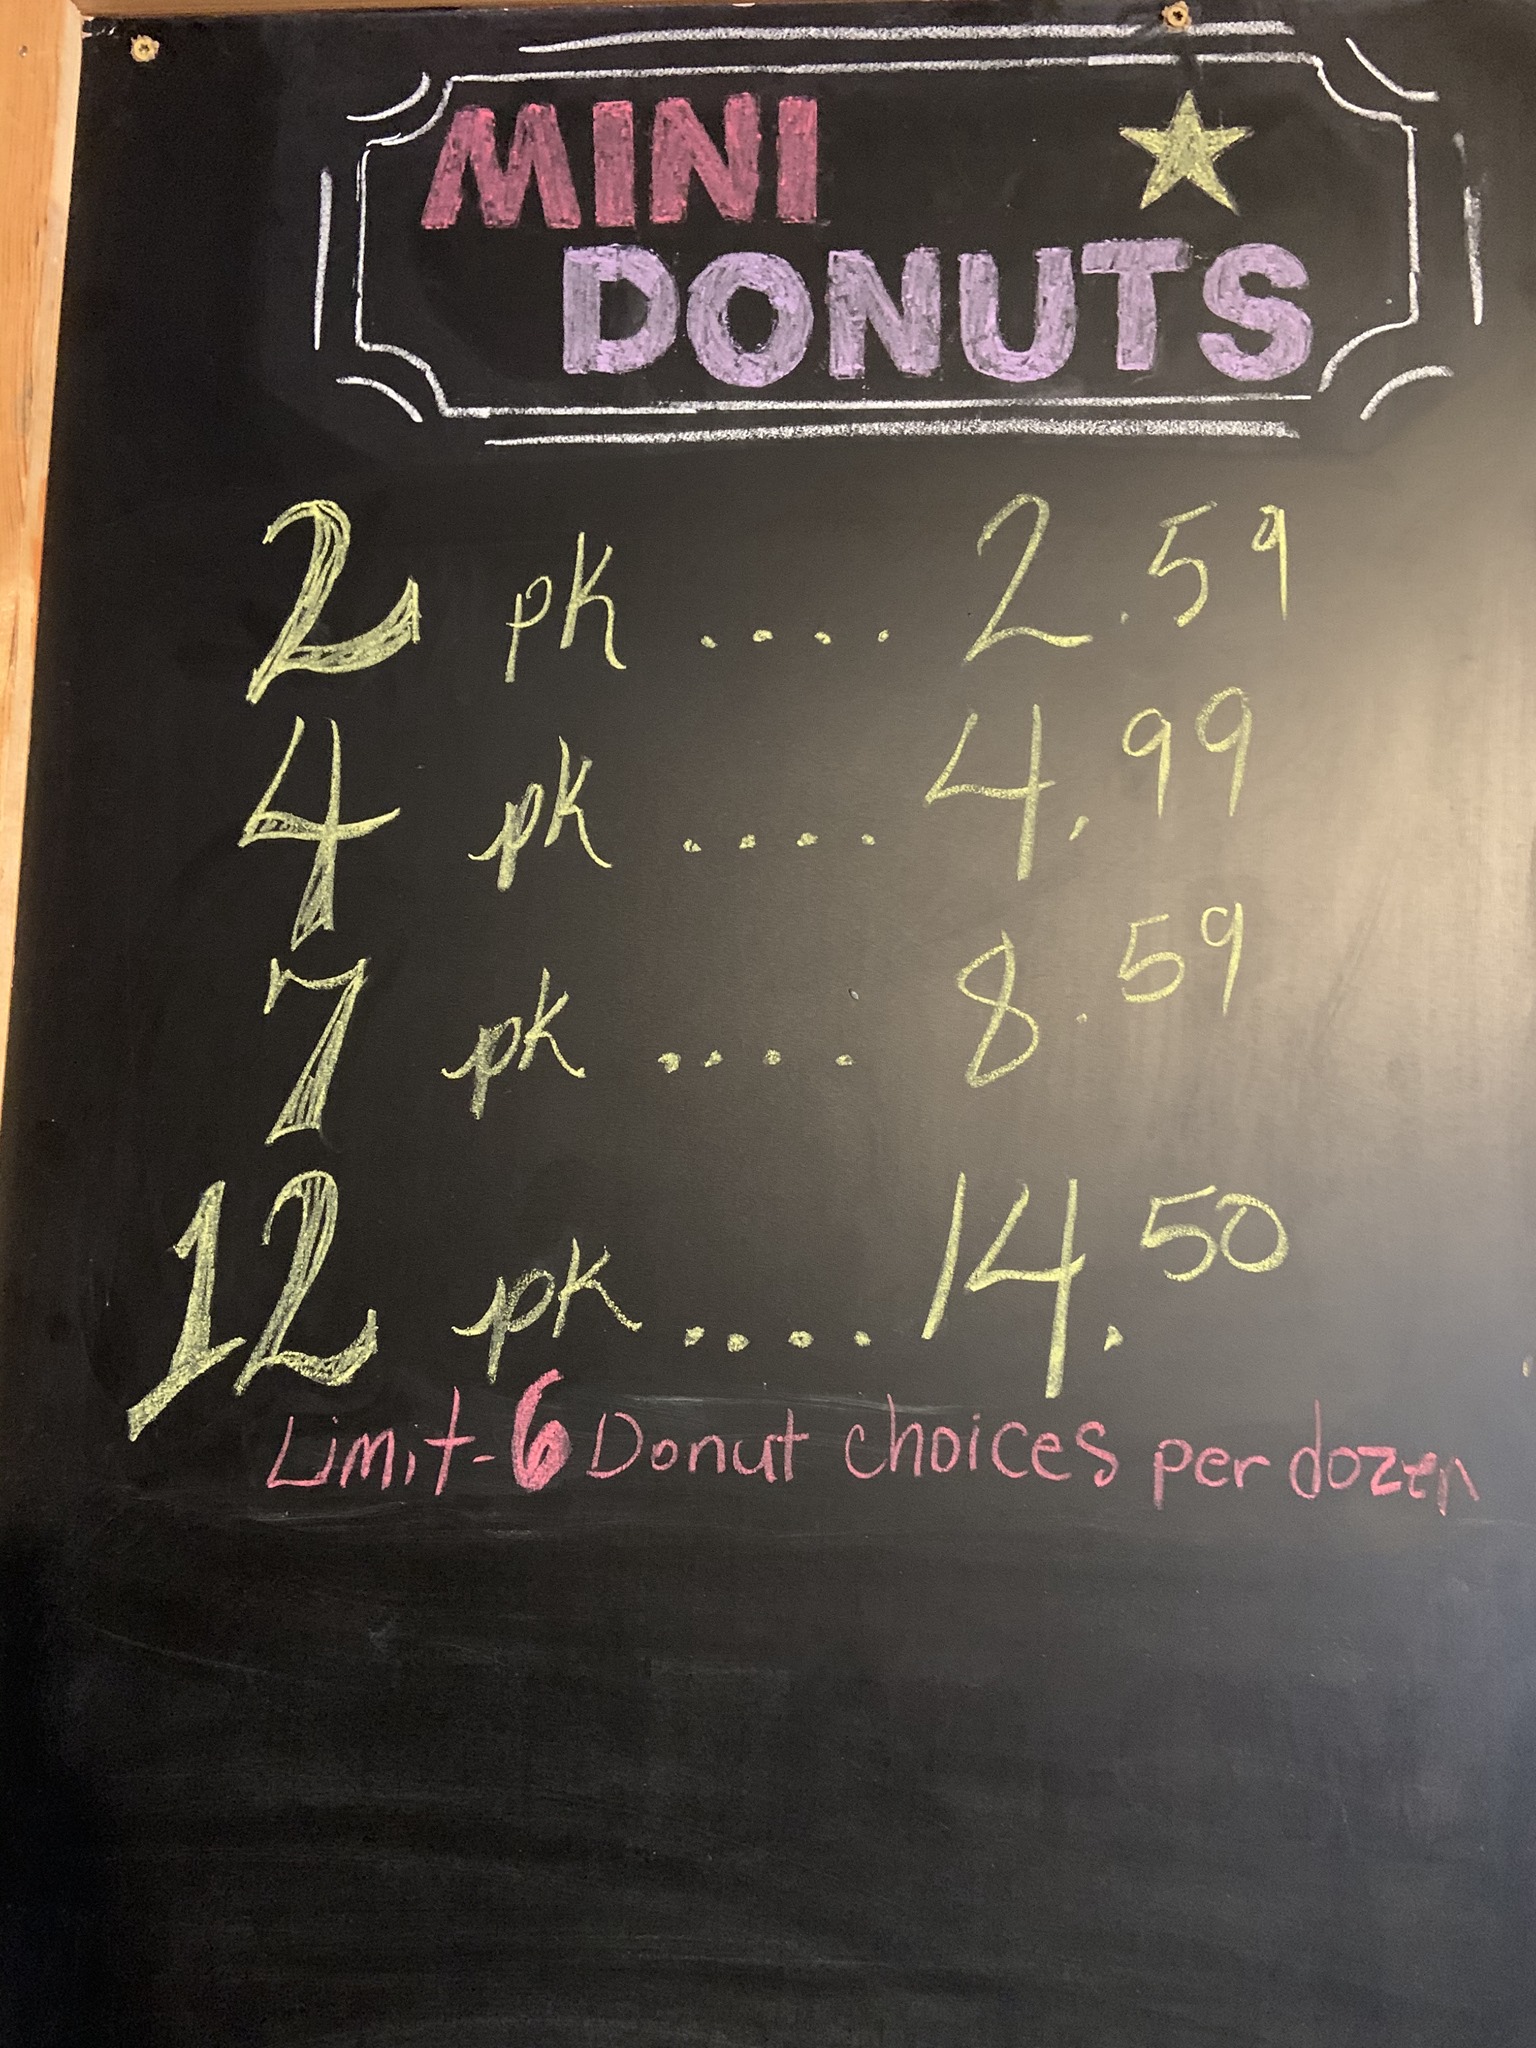 MINI
DONUTS
2 pk .... 2.59
4 pk .... 4.99
7 pk .... 8.59
12 pk .... 14.50
Limit-6 Donut choices per dozen